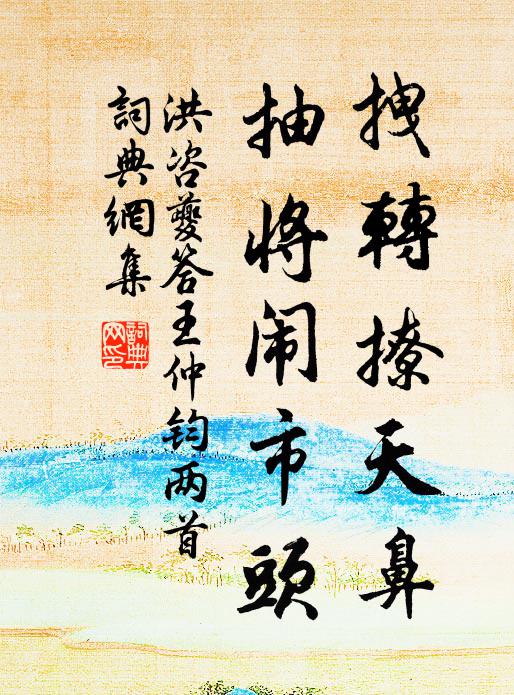 拽轉撩天鼻
抽將闹市頭
洪咨夔答王仲鈞两首
詞典網集
詞典网印